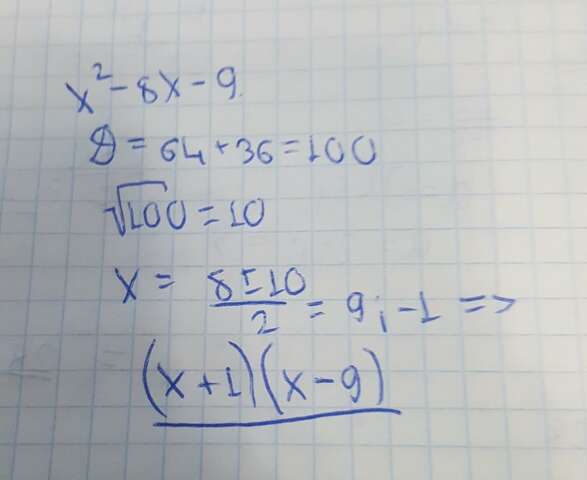 x² - 8x - 9
D = 64 + 36 = 100
√100 = 10
x = (8 ± 10)/2 = 9; -1 =>
(x + 1)(x - 9)